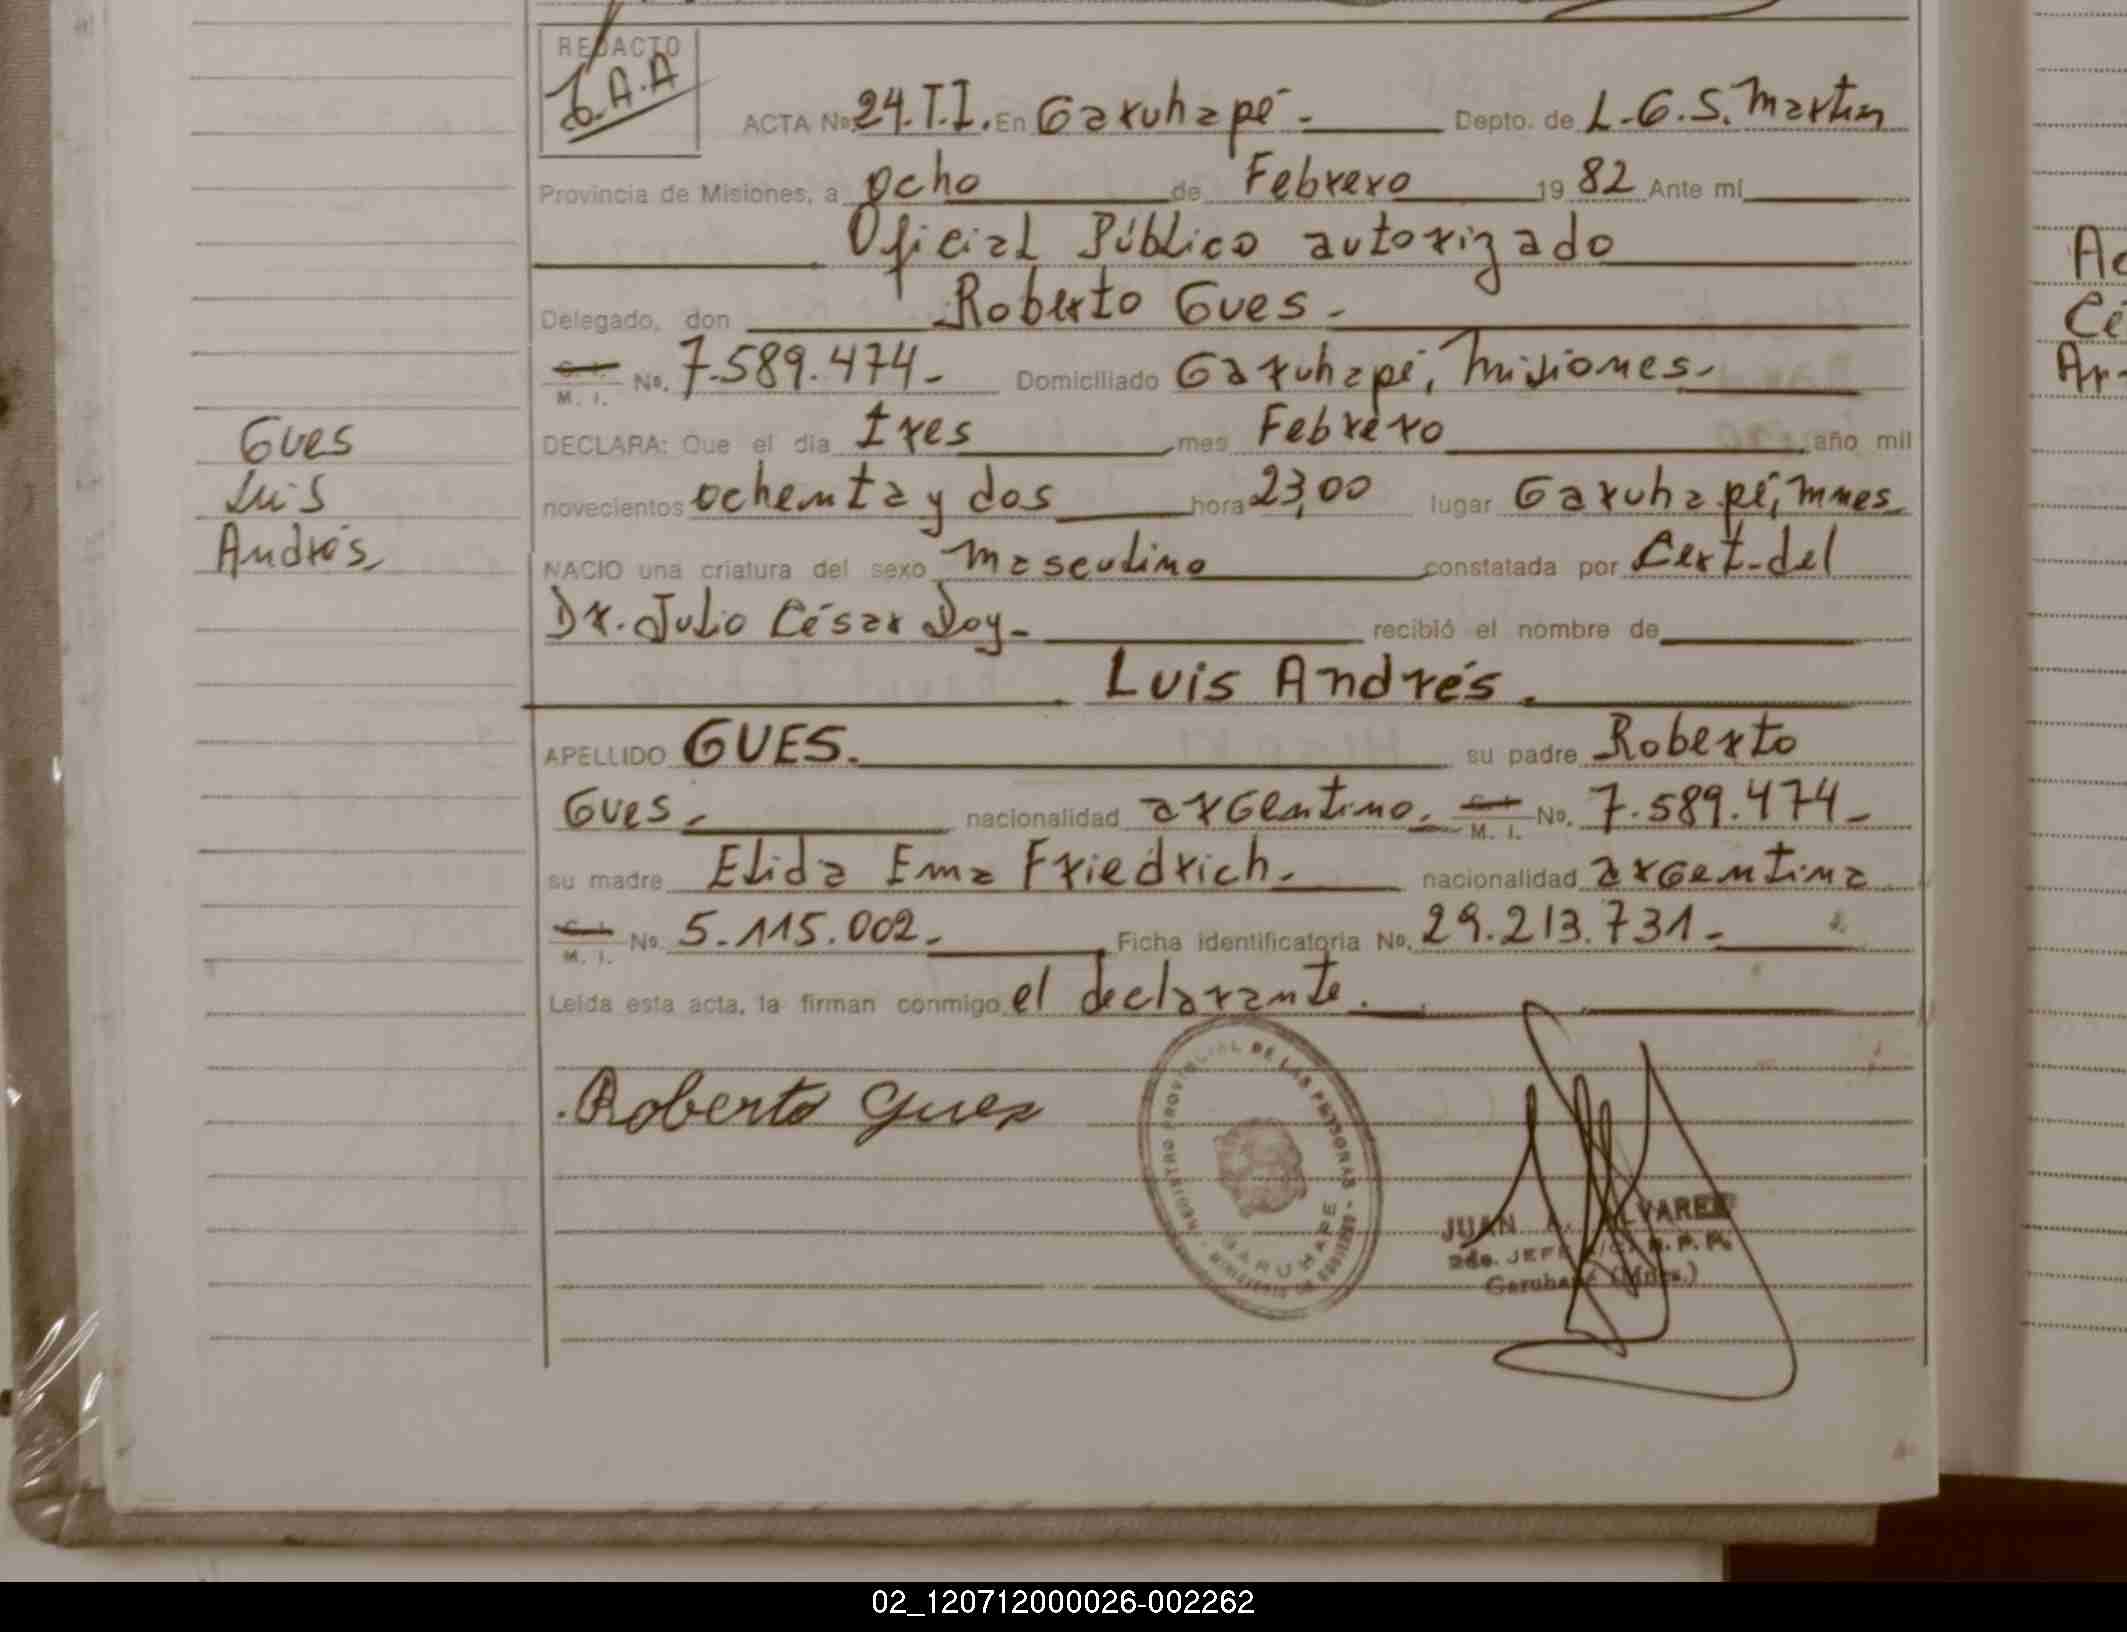 REDACTO
J.A.A
ACTA No. 24.T.I. En Garuhapé - Depto. de L.G.S. Martin
Provincia de Misiones, a ocho de Febrero 19 82 Ante mí
Oficial Público autorizado
Delegado, don Roberto Gues -
C. I. M. I. No. 7.589.474 - Domiciliado Garuhapé, Misiones -
DECLARA: Que el día tres mes Febrero año mil
novecientos ochenta y dos hora 23,00 lugar Garuhapé, Mnes
NACIO una criatura del sexo Masculino constatada por Cert. del
Dr. Julio César Doy - recibió el nombre de
Luis Andrés.
APELLIDO GUES. su padre Roberto
Gues - nacionalidad argentino. C. I. M. I. No. 7.589.474 -
su madre Elida Ema Friedrich. nacionalidad argentina
C. I. M. I. No. 5.115.002 - Ficha identificatoria No. 29.213.731 -
Leída esta acta, la firman conmigo el declarante.
Gues
Luis
Andrés
Roberto Gues
REGISTRO PROVINCIAL DE LAS PERSONAS - MINISTERIO DE GOBIERNO -
GARUHAPE
JUAN ALVAREZ
2do. JEFE R. P. P.
Garuhapé (Mnes.)
Ac
Cé
Ar
02_120712000026-002262